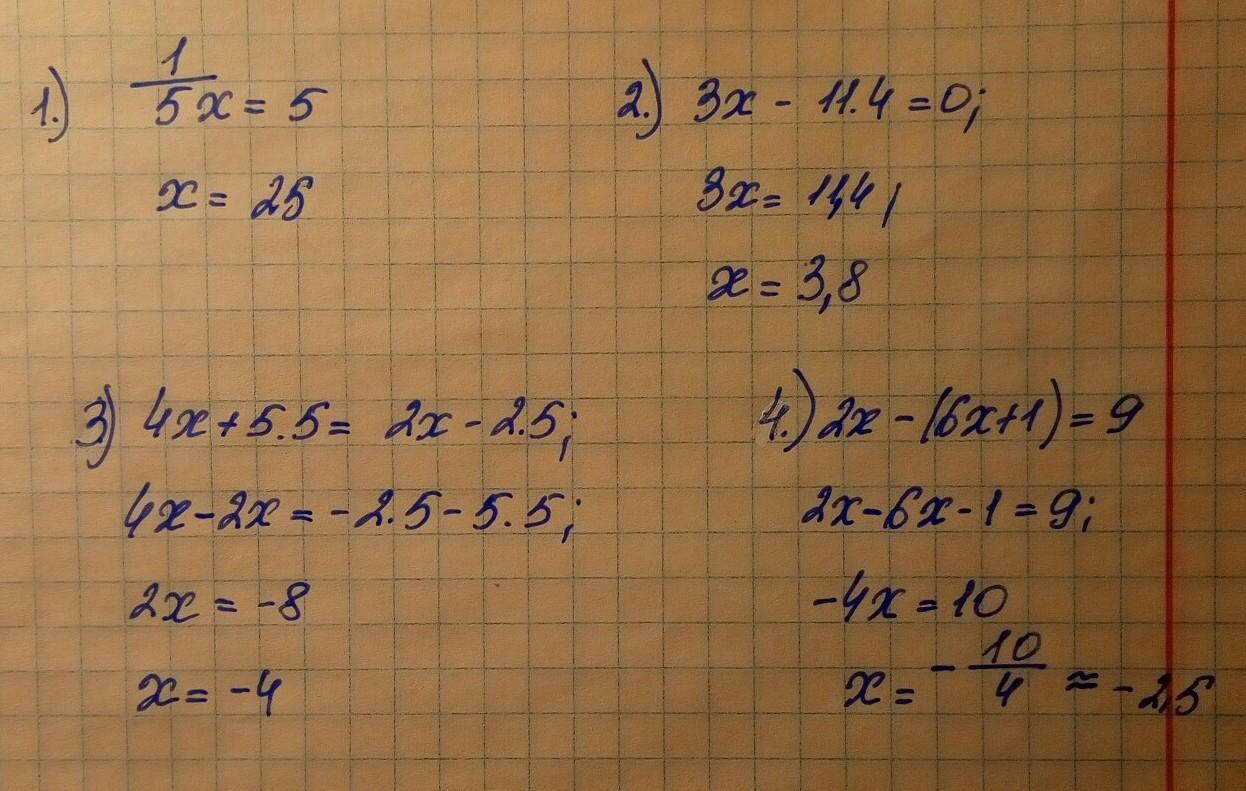 1.) 1/5 x = 5
x = 25
2.) 3x - 11.4 = 0;
3x = 11,4;
x = 3,8
3) 4x + 5.5 = 2x - 2.5;
4x - 2x = -2.5 - 5.5;
2x = -8
x = -4
4.) 2x - (6x+1) = 9
2x - 6x - 1 = 9;
-4x = 10
x = - 10/4 ≈ -2,5